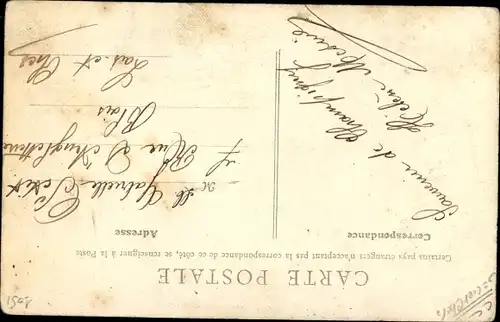 CARTE POSTALE
Certains pays étrangers n'acceptant pas la correspondance de ce côté, se renseigner à la Poste
Correspondance
Adresse
Souvenir de
Champigny
M
Gabrielle
7 Rue d'Angleterre
Blois
Loir et Cher